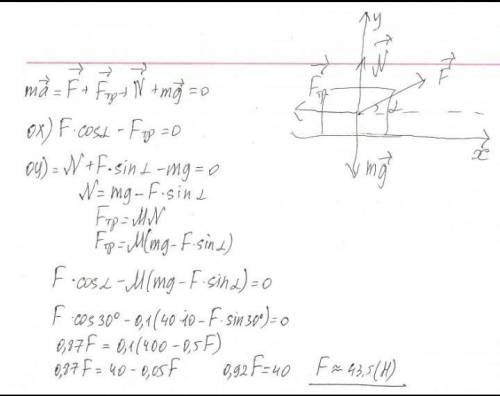 y
N⃗
F⃗тр
F⃗
α
x⃗
mg⃗
ma⃗ = F⃗ + F⃗тр + N⃗ + mg⃗ = 0
ox) F·cosα - Fтр = 0
oy) = N + F·sinα - mg = 0
N = mg - F·sinα
Fтр = MN
Fтр = M(mg - F·sinα)
F·cosα - M(mg - F·sinα) = 0
F·cos30° - 0,1(40·10 - F·sin30°) = 0
0,87F = 0,1(400 - 0,5F)
0,87F = 40 - 0,05F 0,92F = 40 F ≈ 43,5(H)